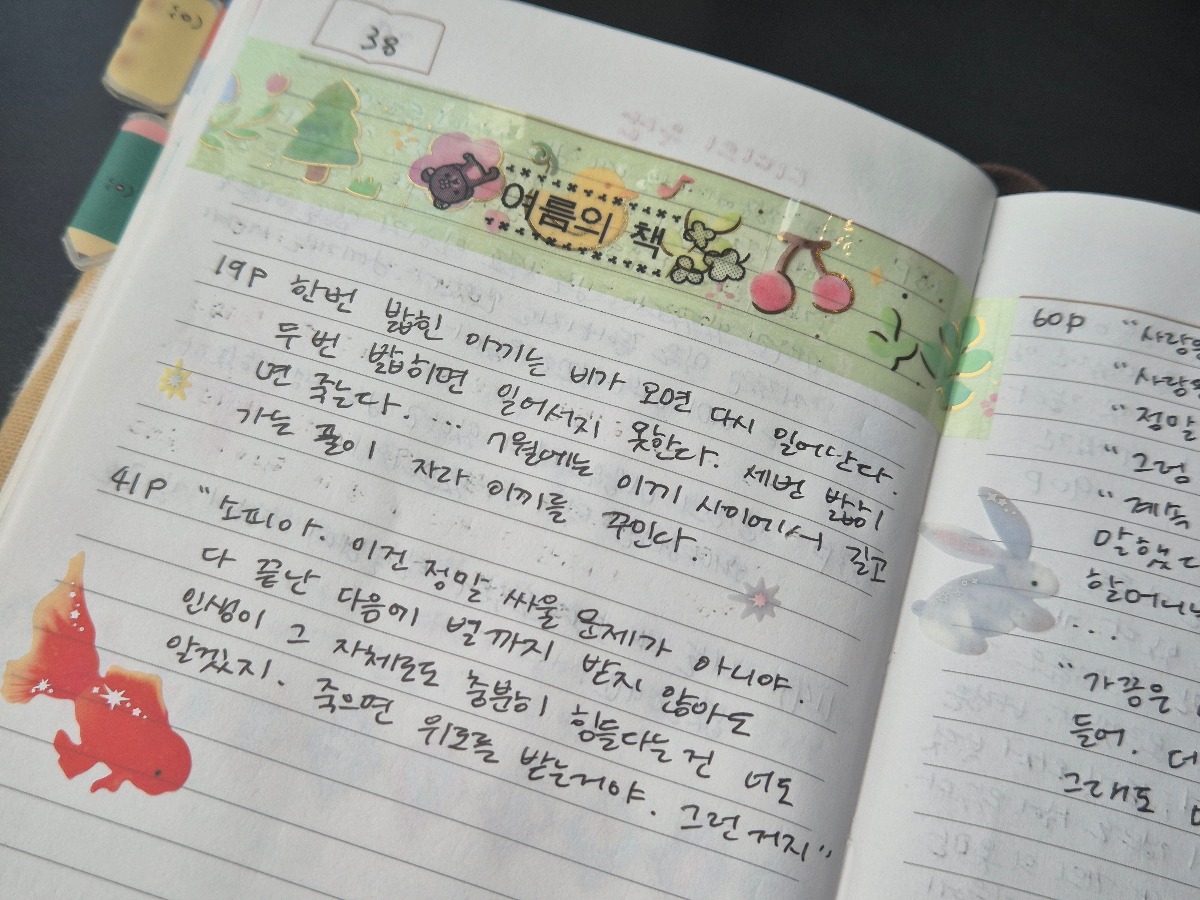 38
여름의 책
19P 한번 밟힌 이끼는 비가 오면 다시 일어난다.
두번 밟히면 일어서지 못한다. 세번 밟히
면 죽는다. … 7월에는 이끼 사이에서 길고
가는 풀이 자라 이끼를 꾸민다.
41P "소피아. 이건 정말 싸울 문제가 아니야.
다 끝난 다음에 벌까지 받지 않아도
인생이 그 자체로도 충분히 힘들다는건 너도
알겠지. 죽으면 위로를 받는거야. 그런거지"
60P "사랑
"사랑
"정말
"그럼
"계속
말했다
할머니
...
"가끔은
들어. 더
그래도